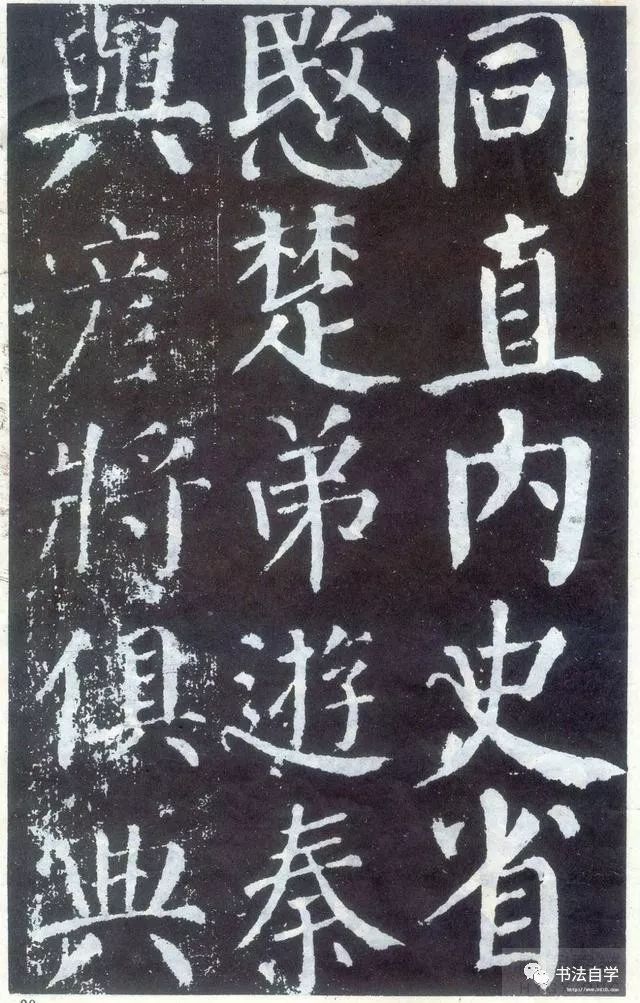 同直内史省
愍楚弟遊秦
與彦將俱典
书法自学